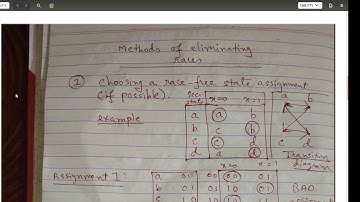 Methods of eliminating
races
① Choosing a race-free state assignment
(if possible).
Example
state x=0 x=1
a a b
b c b
c c d
d a d
a b
c d
Transition
diagram
x=0 x=1
Assignment 1:
a 00 00 01
b 01 10 01 BAD
c 10 10